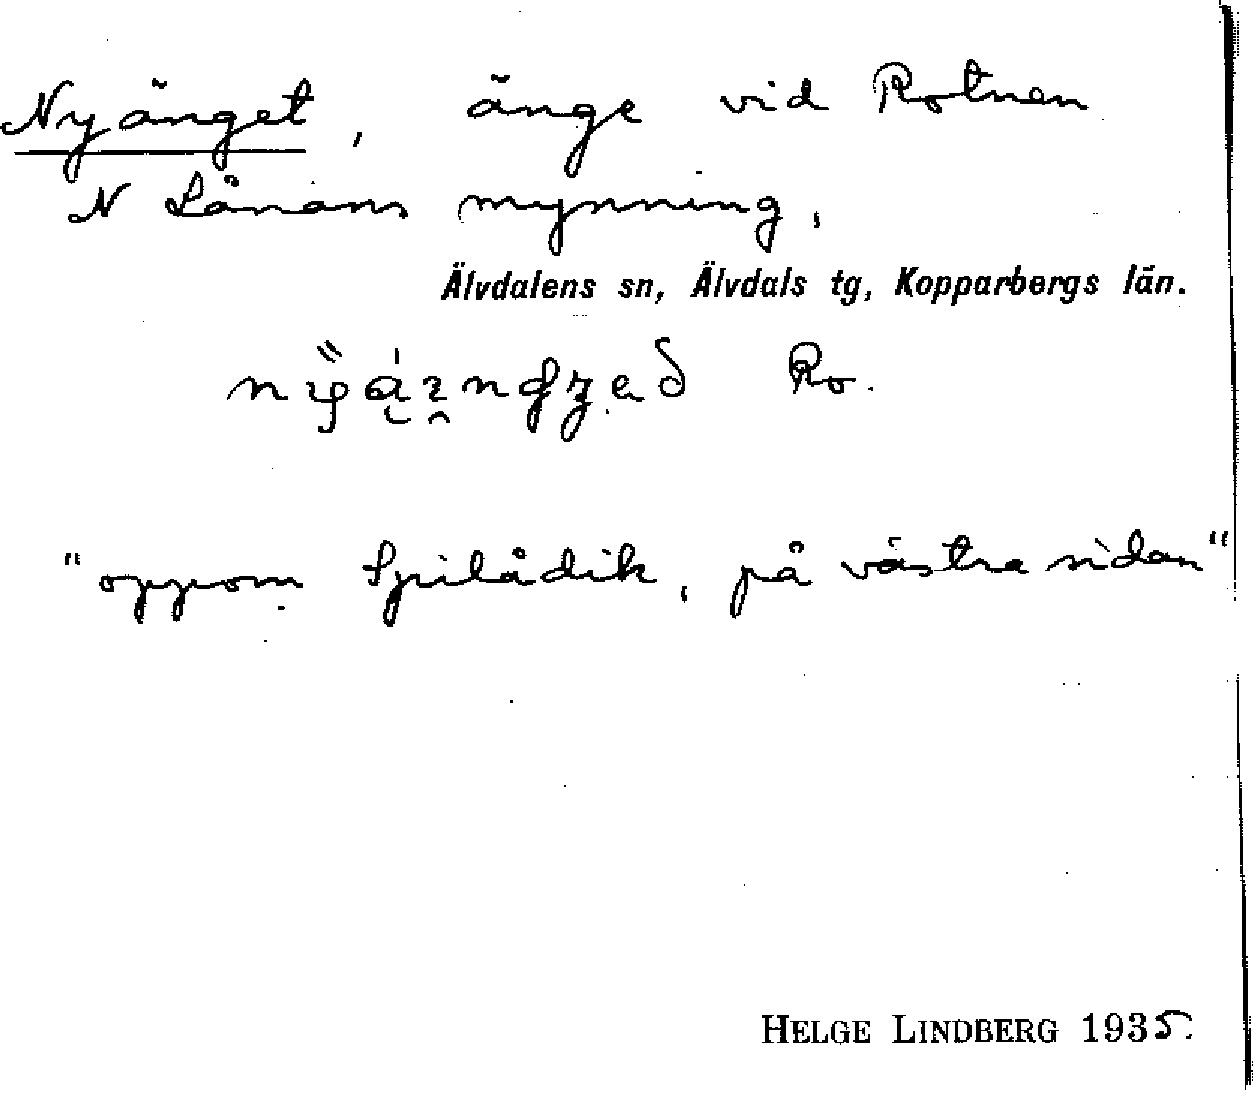 Nyänget, änge vid Rotnen
N Lånans mynning,
Älvdalens sn, Älvdals tg, Kopparbergs län.
Ro.
"oppom Spilådik, på västra sidan"
HELGE LINDBERG 1935.